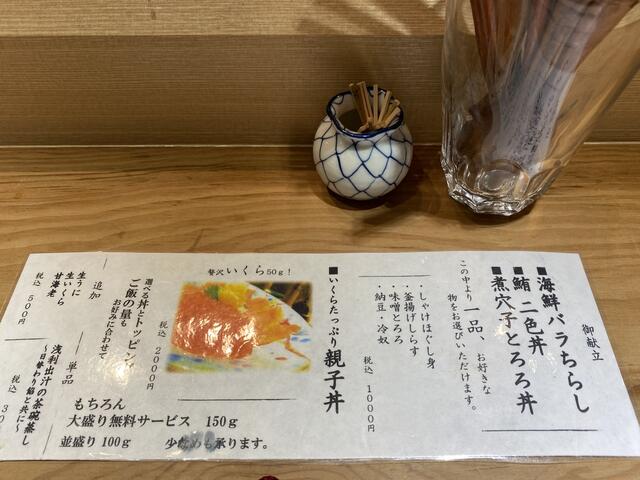 御献立
■海鮮バラちらし
■鮪二色丼
■煮穴子とろろ丼
この中より一品、お好きな
物をお選びいただけます。
・しゃけほぐし身
・釜揚げしらす
・味噌とろろ
・納豆・冷奴
税込 1000円
■いくらたっぷり親子丼
贅沢いくら50g!
税込 2000円
選べる丼とトッピング
ご飯の量も
お好みに合わせて
もちろん
大盛り無料サービス 150g
並盛り100g
少なめも承ります。
追加
生うに
生いくら
甘海老
税込 500円
単品
浅利出汁の茶碗蒸し
～日替わり餡と共に～
税込 30